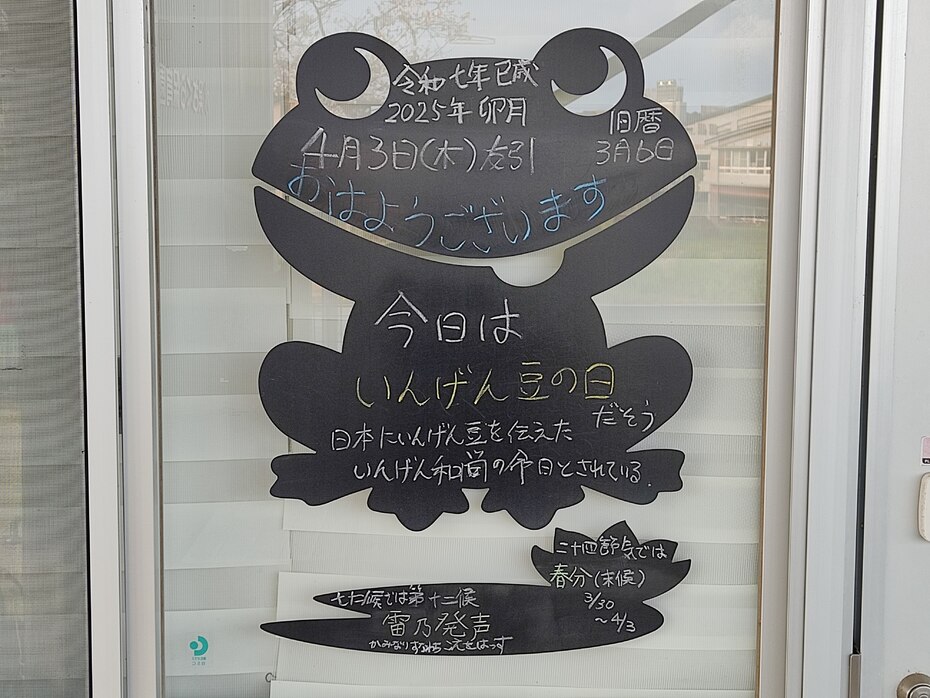 令和七年巳歳
2025年 卯月
4月3日(木)友引
旧暦
3月6日
おはようございます
今日は
いんげん豆の日
だそう
日本にいんげん豆を伝えた
いんげん和尚の命日とされている.
二十四節気では
春分(末候)
3/30
～4/3
七十二候では第十二候
雷乃発声
かみなりすなわちこえをはっす